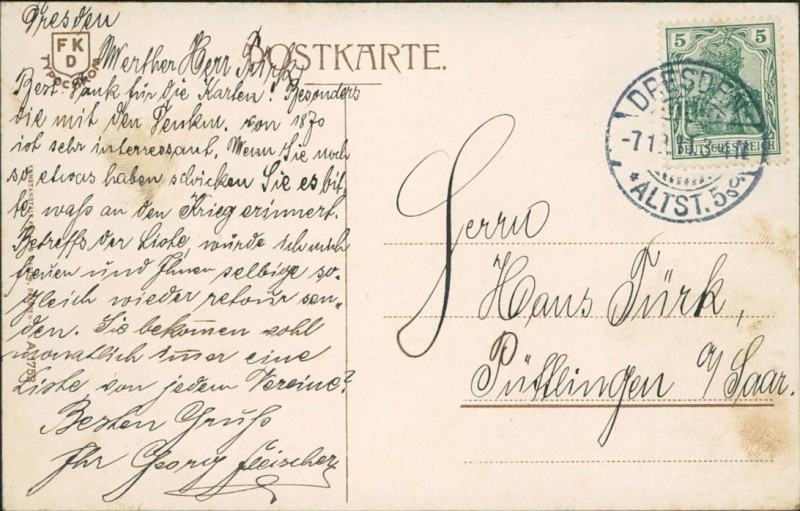 Dresden
Werther Herr Türk
Best. Dank für die Karten! Besonders
die mit den Denkm. von 1870
ist sehr interressant. Wenn Sie noch
so etwas haben schicken Sie es bit-
te waß an den Krieg erinnert.
Betreffs der Liste, würde ich mich
freuen und Ihnen selbige so-
gleich wieder retour sen-
den. Sie bekommen wohl
monatlich immer eine
Liste von jedem Vereine?
Besten Gruß
Ihr Georg Fleischer
FKD
TYPOCHROM
POSTKARTE.
5 5
DEUTSCHES REICH
DRESDEN
-7.1
* ALTST. 5
Herrn
Hans Türk,
Püttlingen a/Saar.